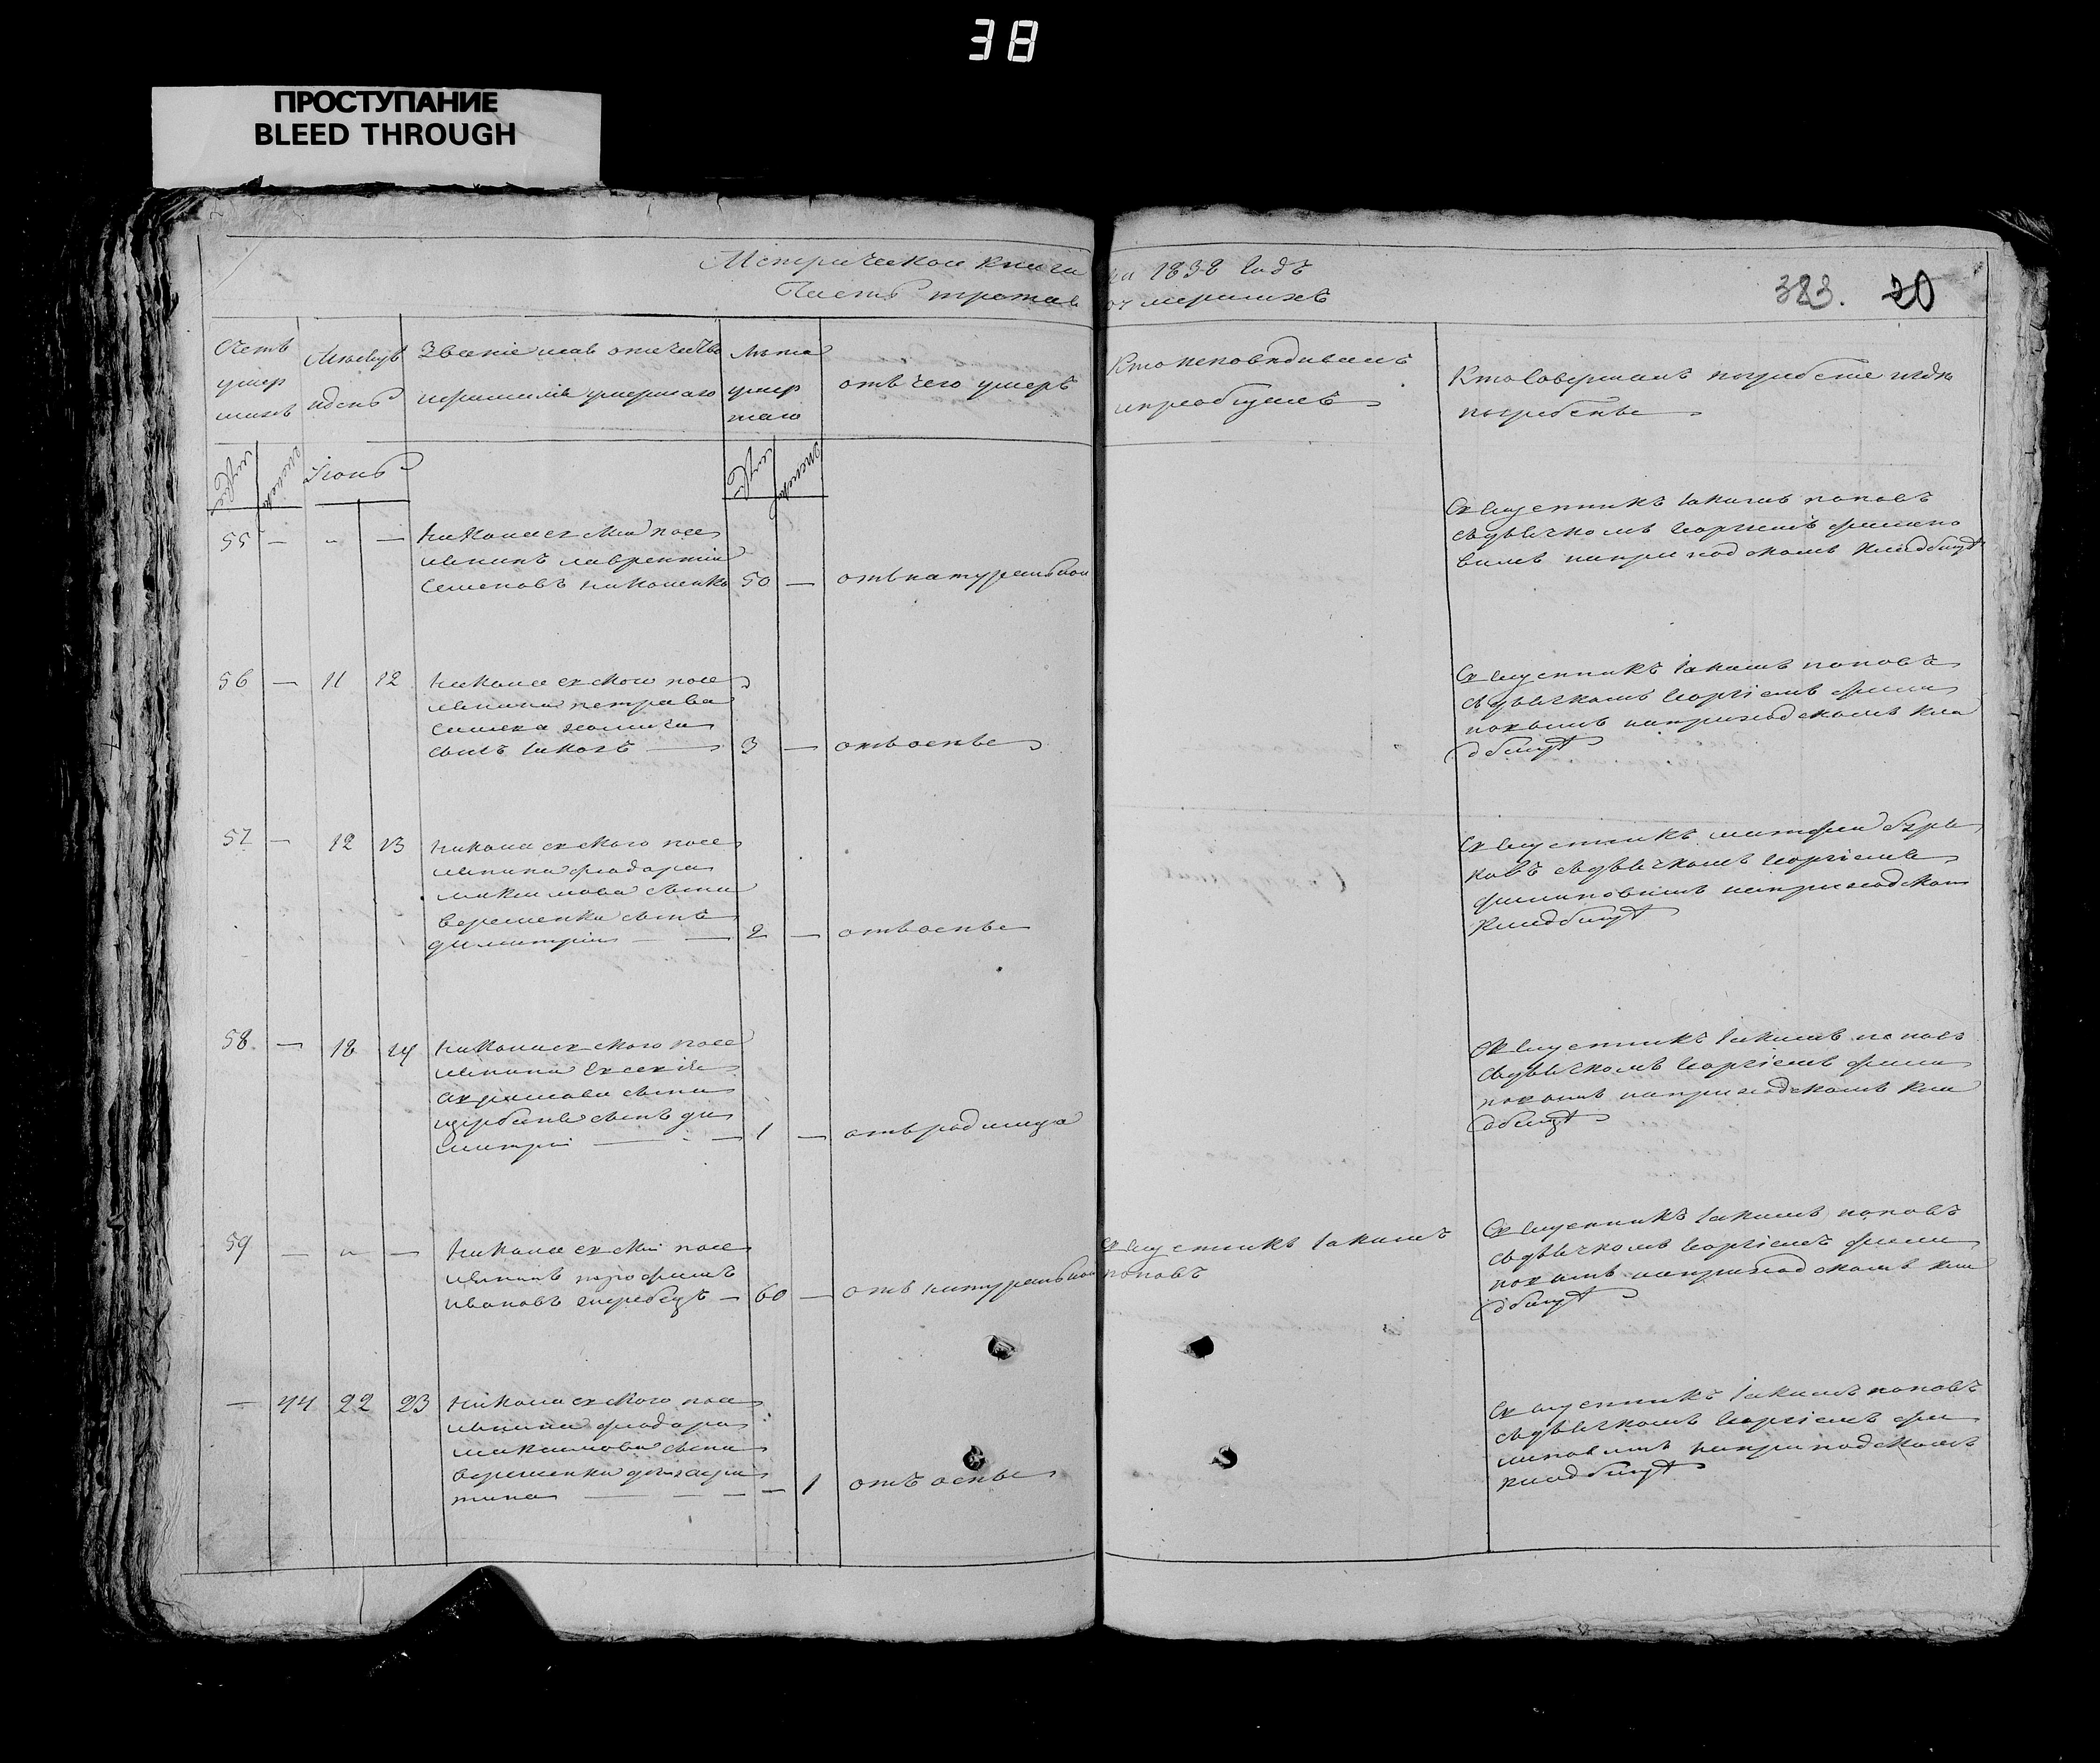 38
ПРОСТУПАНИЕ
BLEED THROUGH
Метрической книги на 1838 годъ
Часть третая о умершихъ
383. 20
Счетъ умер шихъ
Месяцъ и день
Званіе имя отечество и фамилія умершаго
Лета умер шаго
отъ чего умеръ
Кто исповедывалъ и приобщалъ
Кто Совершалъ погребеніе и где погребены
муж женск
Іюнь
муж женск
55 — „ —
Николаевскій посе
лянинъ лаврентій
Семеновъ Николенко 50 — отъ натуральной
Священникъ Іакимъ поповъ
съ дьячкомъ Георгіемъ филипо
вимъ на приходскомъ кладбищѣ
56 — 11 12
Николаевского посе
лянина петра ва
сынъ Іаковъ — 3 — отъ оспы
Священникъ Іакимъ поповъ
съ дьячкомъ Георгіемъ фили
повымъ на приходскомъ кла
дбищѣ
57 — 12 13
Николаевского посе
лянина феодора
максимова сына
веременка сынъ
димитрій — 2 — отъ оспы
Священникъ матфей
ковъ съ дьячкомъ Георгіемъ
филиповимъ на приходском
кладбищѣ
58 — 12 14
Николаевского посе
лянина
сына
щербины сынъ ди
митрій — 1 — отъ родимца
Священникъ Іакимъ поповъ
съ дьячкомъ Георгіемъ фили
повымъ на приходскомъ кла
дбищѣ
59 — „ —
Николаевскій посе
лянинъ
Ивановъ — 60 — отъ натуральной
Священникъ Іакимъ
поповъ
Священникъ Іакимъ поповъ
съ дьячкомъ Георгіемъ фили
повымъ на приходскомъ кла
дбищѣ
— 44 22 23
Николаевского посе
лянина феодора
максимова сына
веременка дочь
— 1 отъ оспы
Священникъ Іакимъ поповъ
съ дьячкомъ Георгіемъ фи
липовимъ на приходскомъ
кладбищѣ